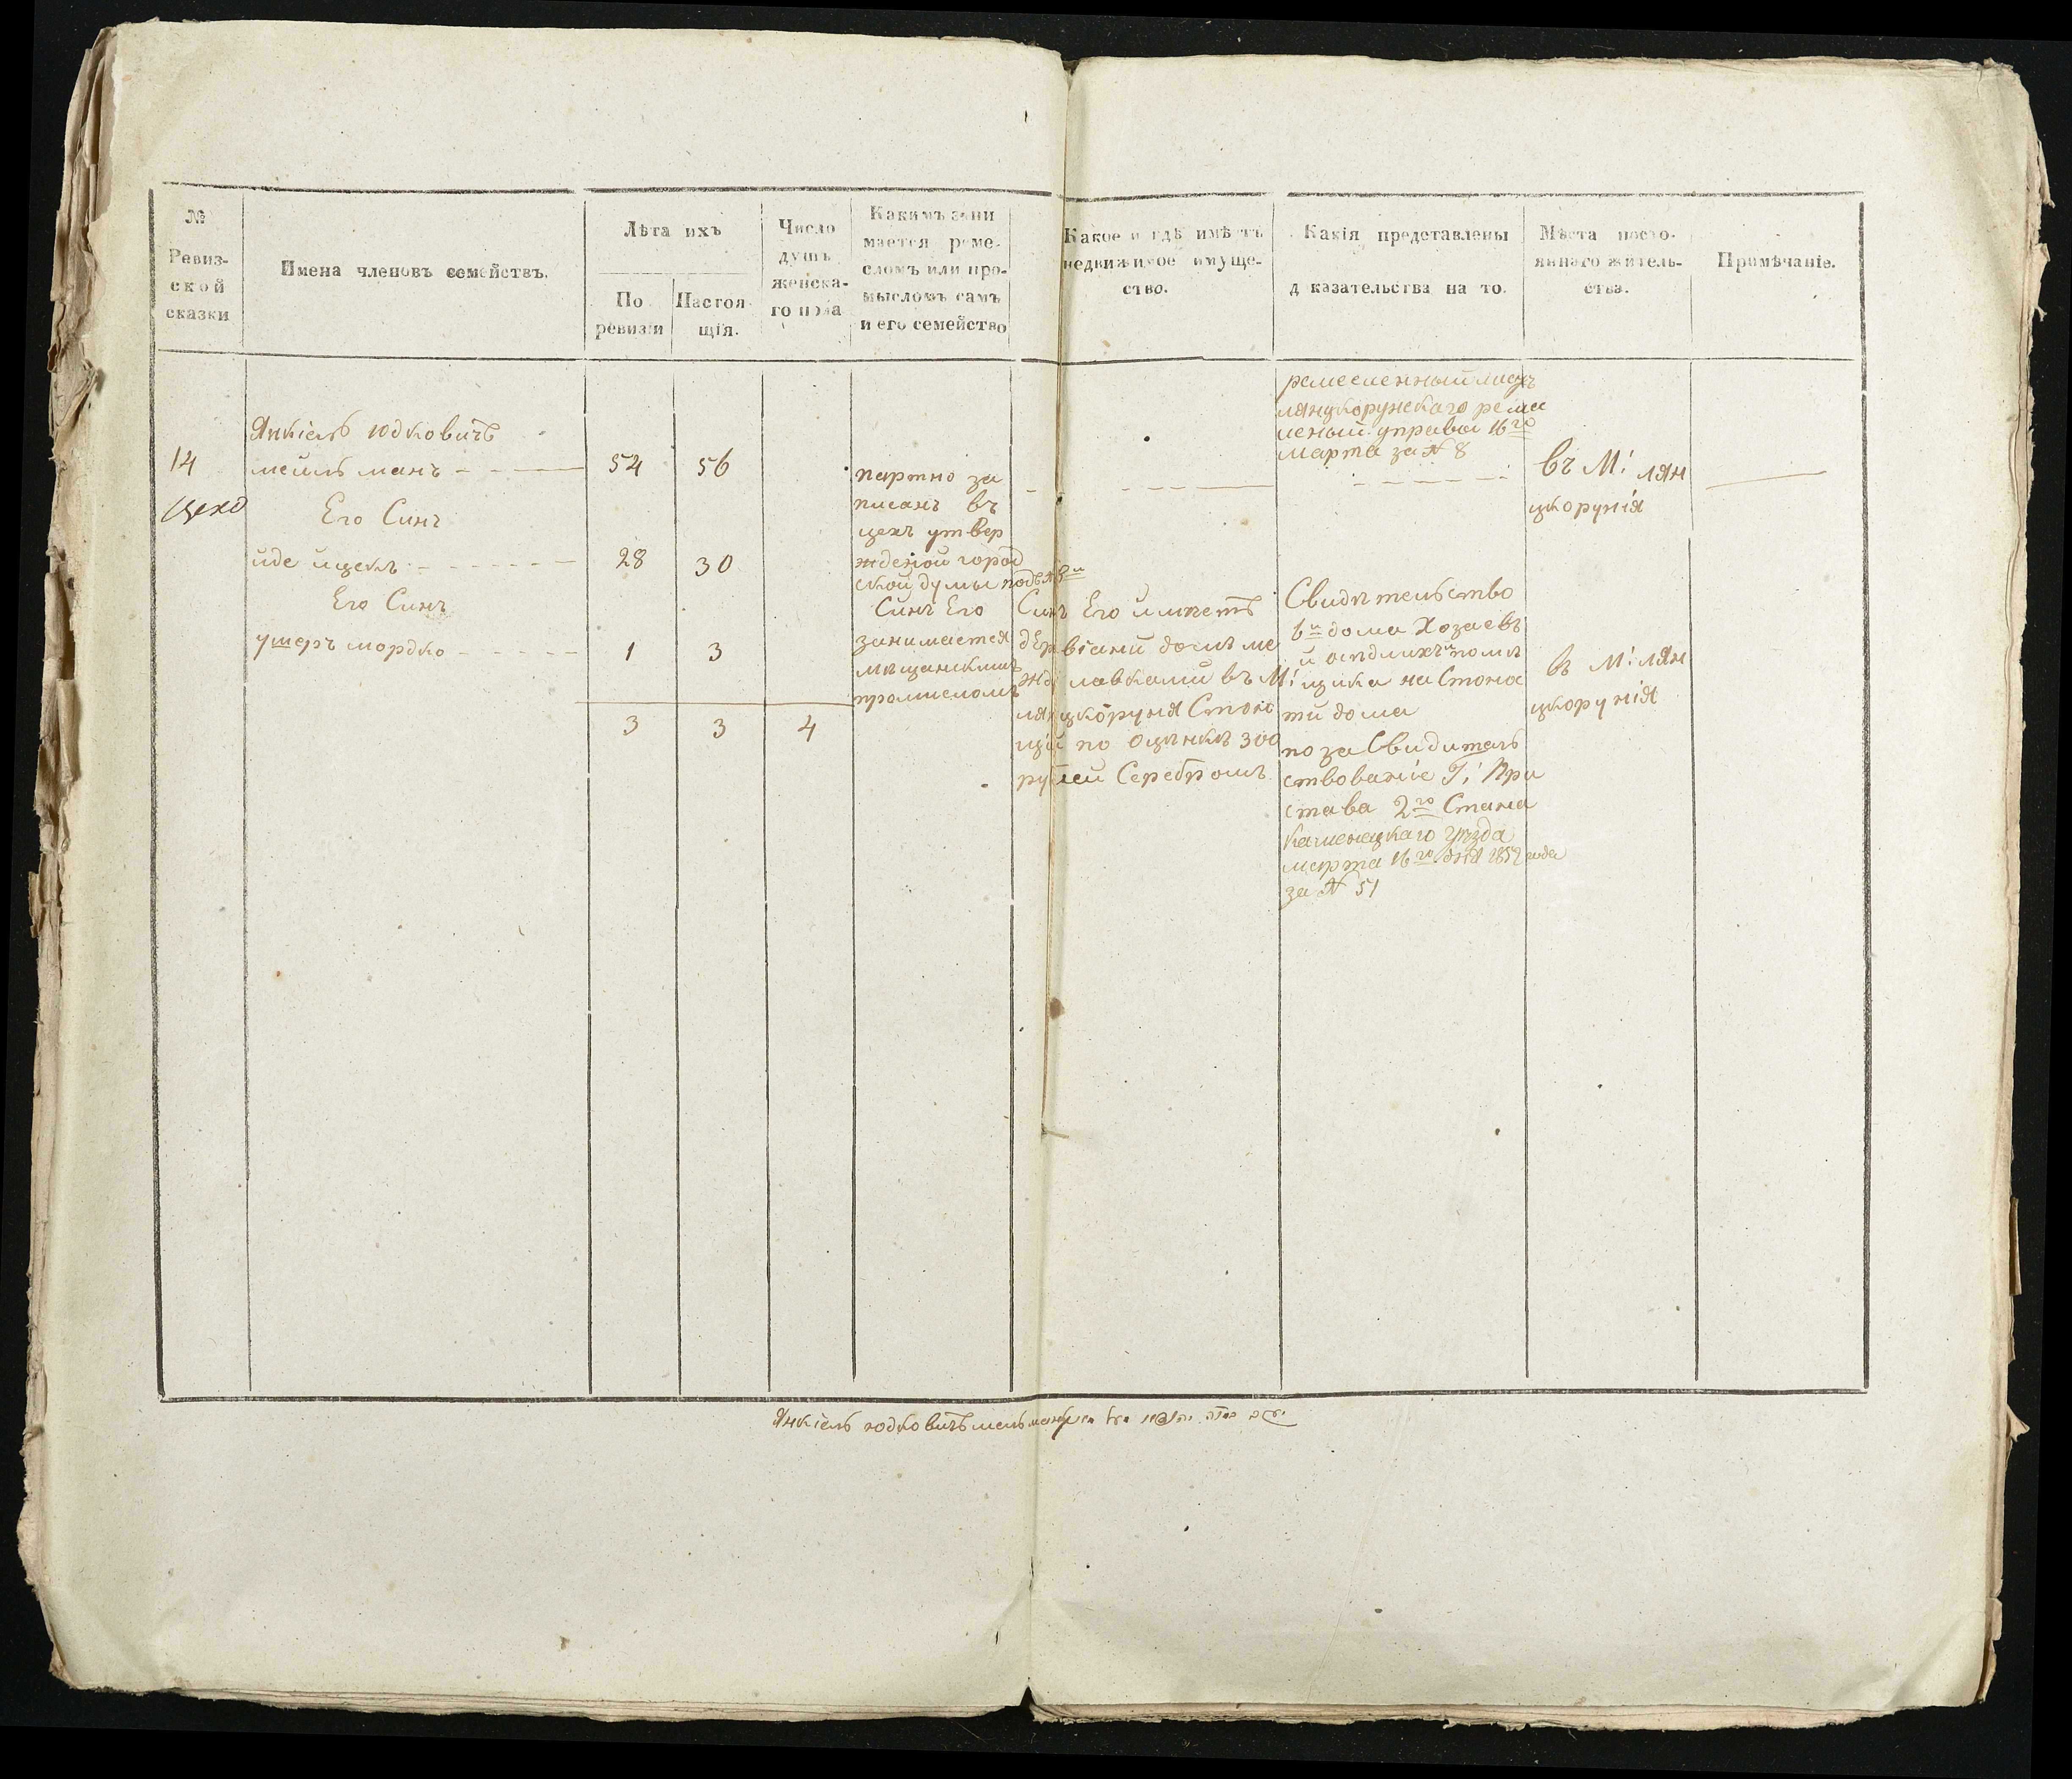 №
Ревиз-
ской
сказки
Имена членовъ семействъ.
Лѣта ихъ
По
ревизіи
Настоя-
щія.
Число
душъ
женска-
го пола
Какимъ зани
мается реме-
сломъ или про-
мысломъ самъ
и его семейство
Какое и гдѣ имѣетъ
недвижимое имуще-
ство.
Какія представлены
доказательства на то.
Мѣста посто-
яннаго житель-
ства.
Примѣчаніе.
14
Цехо
Янкіель юдковичъ
мейльманъ
54 56
Его Синъ
иде ицекъ
28 30
Его Синъ
ушеръ мордко
1 3
3 3 4
партно за
писанъ въ
цехъ утвер
жденой город
ской думы подъ №
Синъ Его
занимается
мѣщанскимъ
промисломъ
Синъ Его имѣетъ
дервіаний домъ ме
жа лавкамй въ М:
лянцкоруня Стою
щій по Оцѣнкѣ 300
рублей Серебромъ
ремесленный листъ
лянцкорунскаго реме
леной управы 16го
марта за № 8
Свидѣтельство
6и дома Хозаевъ
и помѣ
щика на Стоно
ти дома
по за Свидитель
ствованіе Г: При
става 2го Стана
Каменецкаго уѣзда
марта 16го дня 1852 года
за № 51
въ М: лян
цкорунія
въ м: лян
цкорунія
Янкіель юдковичъ мельманъ